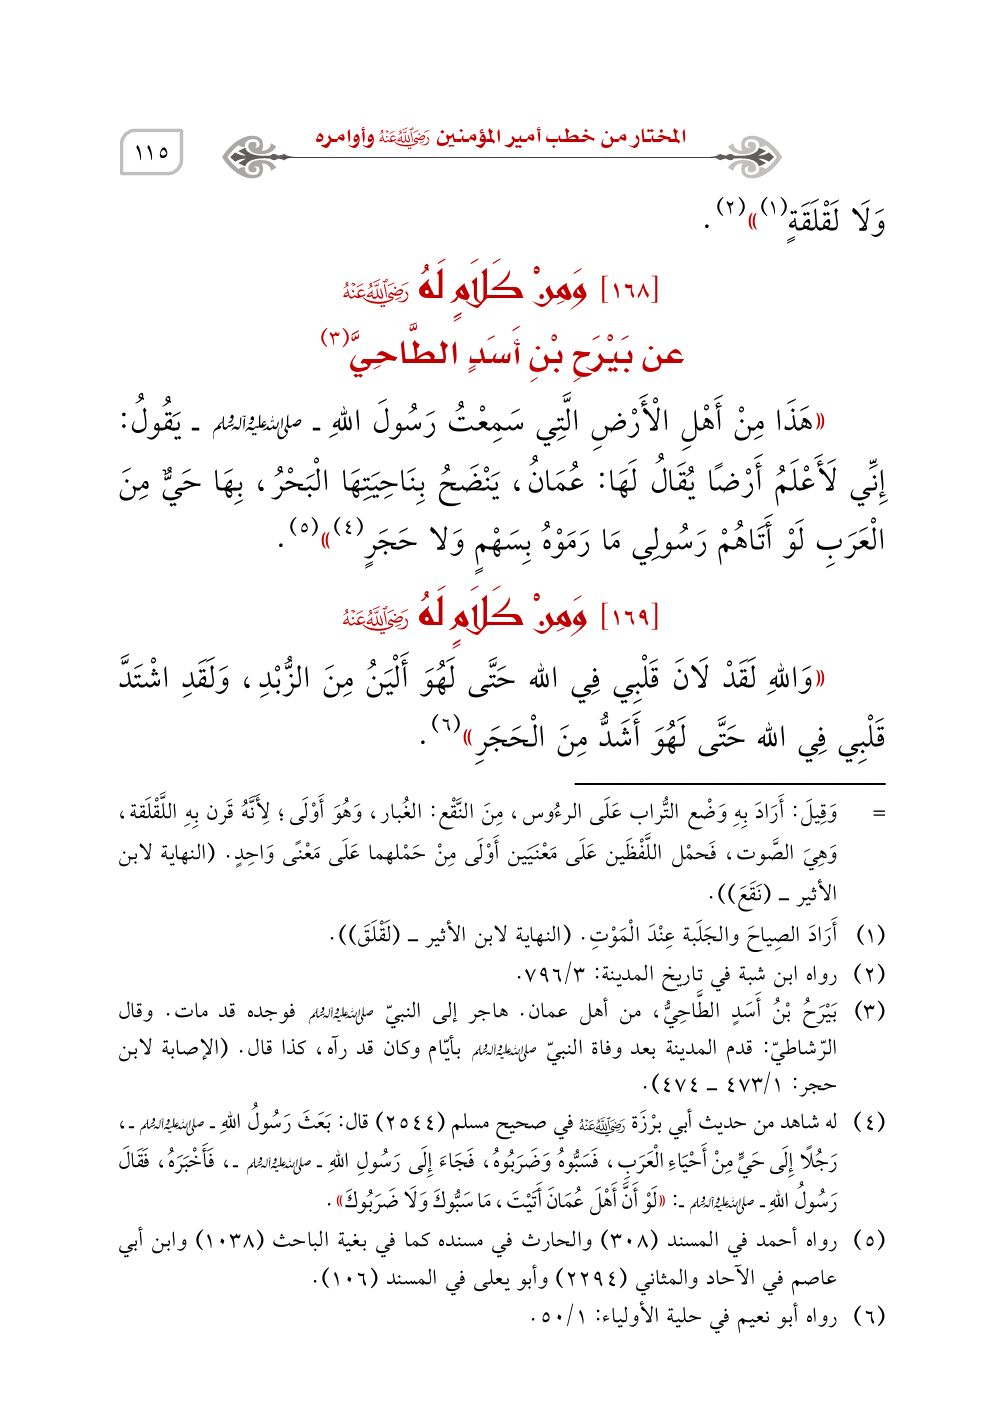 المختار من خطب أمير المؤمنين رَضِيَ اللَّهُ عَنْهُ وأوامره
١١٥
وَلَا لَقْلَقَةٍ(١)»(٢).
[١٦٨] وَمِنْ كَلَامٍ لَهُ رَضِيَ اللَّهُ عَنْهُ
عن بَيْرَحِ بْنِ أَسَدٍ الطَّاحِيَّ(٣)
«هَذَا مِنْ أَهْلِ الْأَرْضِ الَّتِي سَمِعْتُ رَسُولَ اللهِ ـ صلى الله عليه وآله وسلم ـ يَقُولُ:
إِنِّي لَأَعْلَمُ أَرْضًا يُقَالُ لَهَا: عُمَانُ، يَنْضَحُ بِنَاحِيَتِهَا الْبَحْرُ، بِهَا حَيٌّ مِنَ
الْعَرَبِ لَوْ أَتَاهُمْ رَسُولِي مَا رَمَوْهُ بِسَهْمٍ وَلا حَجَرٍ(٤)»(٥).
[١٦٩] وَمِنْ كَلَامٍ لَهُ رَضِيَ اللَّهُ عَنْهُ
«وَاللهِ لَقَدْ لَانَ قَلْبِي فِي الله حَتَّى لَهُوَ أَلْيَنُ مِنَ الزُّبْدِ، وَلَقَدِ اشْتَدَّ
قَلْبِي فِي الله حَتَّى لَهُوَ أَشَدُّ مِنَ الْحَجَرِ»(٦).
= وَقِيلَ: أَرَادَ بِهِ وَضْع التُّراب عَلَى الرءُوس، مِنَ النَّقْع: الغُبار، وَهُوَ أَوْلَى؛ لِأَنَّهُ قَرن بِهِ اللَّقْلَقة،
وَهِيَ الصَّوت، فَحمْل اللَّفْظَين عَلَى مَعْنَيَين أَوْلَى مِنْ حَمْلهما عَلَى مَعْنًى وَاحِدٍ. (النهاية لابن
الأثير ــ (نَقَعَ)).
(١) أَرَادَ الصِياحَ والجَلَبة عِنْدَ الْمَوْتِ. (النهاية لابن الأثير ــ (لَقْلَقَ)).
(٢) رواه ابن شبة في تاريخ المدينة: ٧٩٦/٣.
(٣) بَيْرَحُ بْنُ أَسَدٍ الطَّاحِيُّ، من أهل عمان. هاجر إلى النبيّ صلى الله عليه وآله وسلم فوجده قد مات. وقال
الرّشاطيّ: قدم المدينة بعد وفاة النبيّ صلى الله عليه وآله وسلم بأيّام وكان قد رآه، كذا قال. (الإصابة لابن
حجر: ٤٧٣/١ ــ ٤٧٤).
(٤) له شاهد من حديث أبي بْرْزَة رَضِيَ اللَّهُ عَنْهُ في صحيح مسلم (٢٥٤٤) قال: بَعَثَ رَسُولُ اللهِ ـ صلى الله عليه وآله وسلم ـ،
رَجُلًا إِلَى حَيٍّ مِنْ أَحْيَاءِ الْعَرَبِ، فَسَبُّوهُ وَضَرَبُوهُ، فَجَاءَ إِلَى رَسُولِ اللهِ ـ صلى الله عليه وآله وسلم ـ، فَأَخْبَرَهُ، فَقَالَ
رَسُولُ اللهِ ـ صلى الله عليه وآله وسلم ـ: «لَوْ أَنَّ أَهْلَ عُمَانَ أَتَيْتَ، مَا سَبُّوكَ وَلَا ضَرَبُوكَ».
(٥) رواه أحمد في المسند (٣٠٨) والحارث في مسنده كما في بغية الباحث (١٠٣٨) وابن أبي
عاصم في الآحاد والمثاني (٢٢٩٤) وأبو يعلى في المسند (١٠٦).
(٦) رواه أبو نعيم في حلية الأولياء: ٥٠/١.